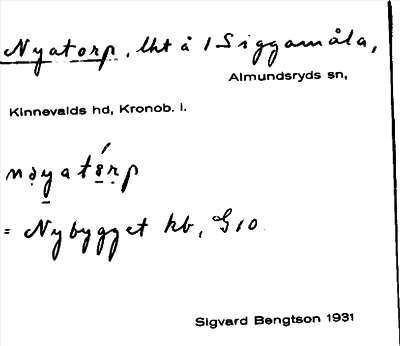 Nyatorp, lht å 1 Siggamåla,
Almundsryds sn,
Kinnevalds hd, Kronob. l.
nə̣y̲at<o̲ṛp
= Nybygget kb, G10
Sigvard Bengtson 1931